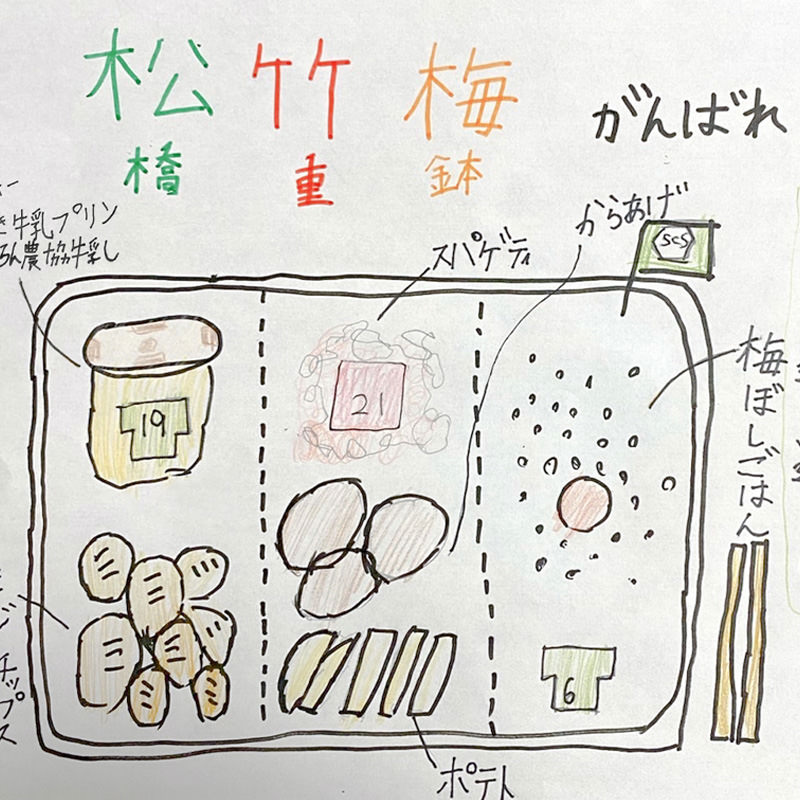 松竹梅
橋重鉢
がんばれ
牛乳プリン
農協牛乳
スパゲティ
からあげ
SCS
梅ぼしごはん
19
21
6
チップス
ポテト